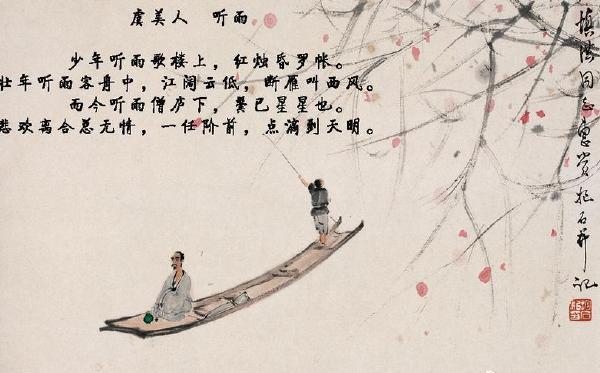 虞美人 听雨
少年听雨歌楼上，红烛昏罗帐。
壮年听雨客舟中，江阔云低，断雁叫西风。
而今听雨僧庐下，鬓已星星也。
悲欢离合总无情，一任阶前，点滴到天明。
同志惠赏抱石并记